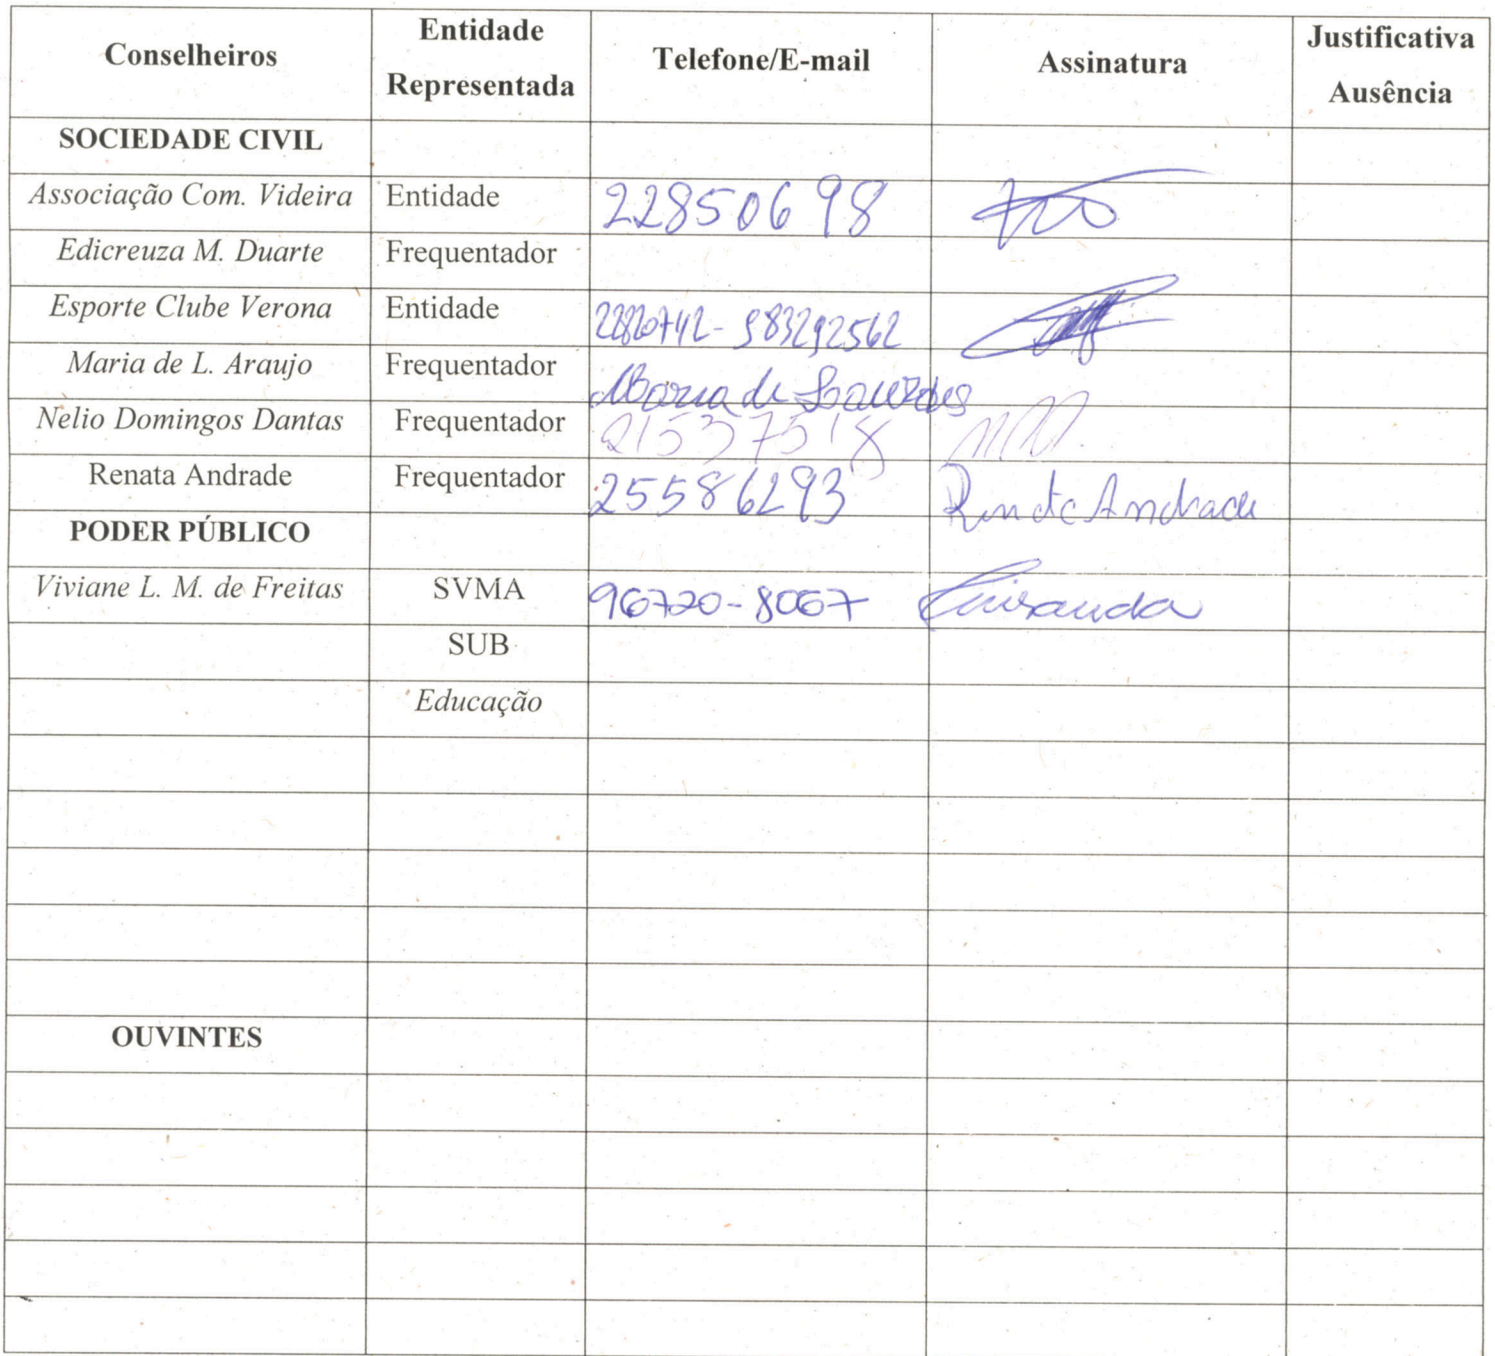 Conselheiros Entidade Representada Telefone/E-mail Assinatura Justificativa Ausência
SOCIEDADE CIVIL
Associação Com. Videira Entidade 22850698
Edicreuza M. Duarte Frequentador
Esporte Clube Verona Entidade
Maria de L. Araujo Frequentador Maria de Lourdes
Nelio Domingos Dantas Frequentador 21537518
Renata Andrade Frequentador 25586293 Renata Andrade
PODER PÚBLICO
Viviane L. M. de Freitas SVMA 96720-8067
SUB
Educação
OUVINTES